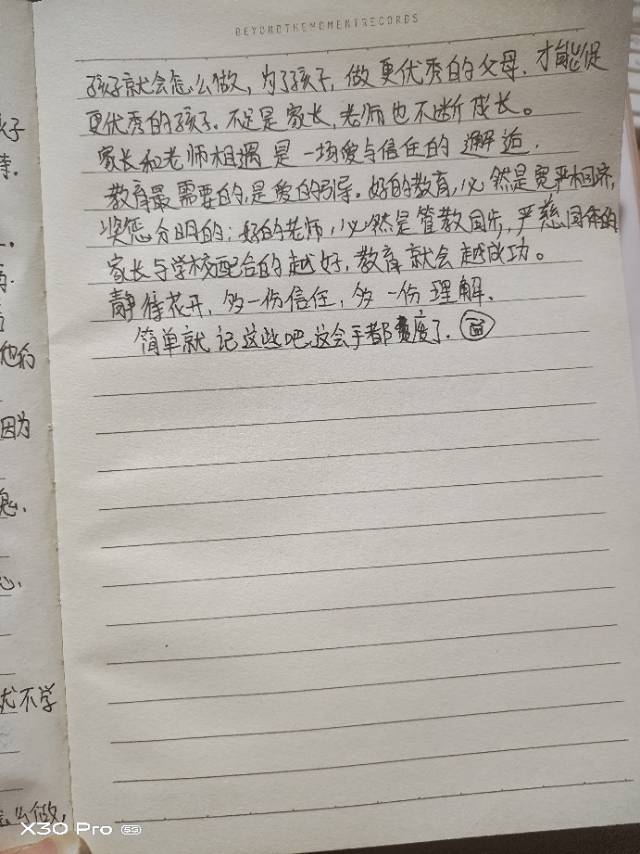 BEYONDTHEMOMENTRECORDS
孩子就会怎么做,为了孩子,做更优秀的父母.才能促
更优秀的孩子.不足是家长,老师也不断成长。
家长和老师相遇是一场爱与信任的邂逅.
教育最需要的,是爱的引导.好的教育,必然是宽严相济,
奖惩分明的;好的老师,必然是管教同步,严慈同体的
家长与学校配合的越好,教育就会越成功。
静待花开,多一份信任,多一份理解.
简单就记这些吧.这会手都 度了.
孩子
待.
他们
因为
就不学
怎么做,
X30 Pro 5G